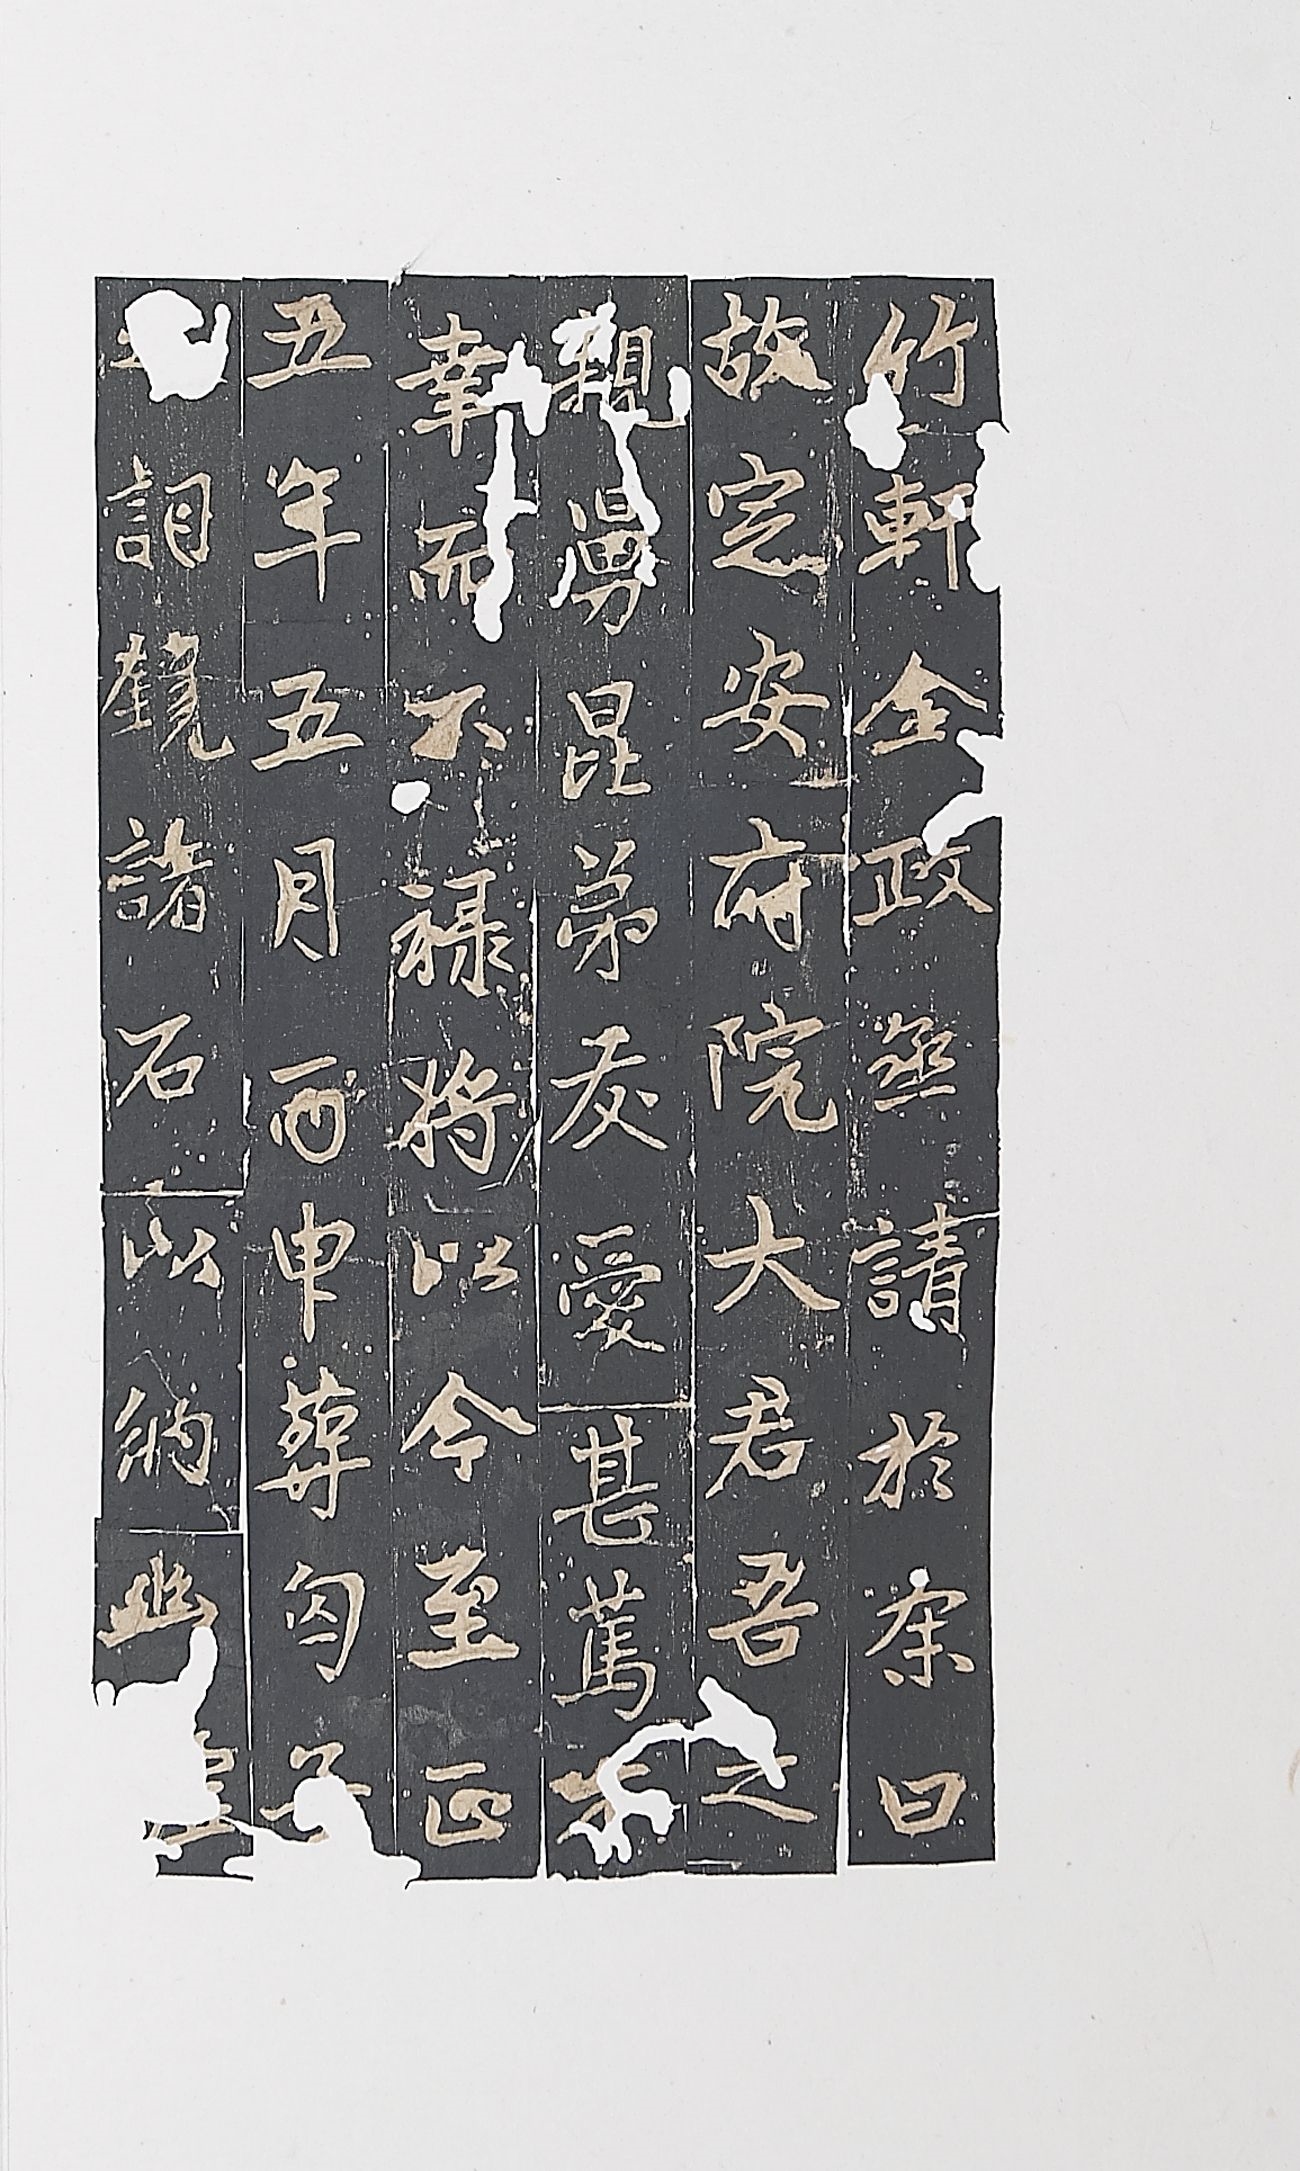 竹軒金政丞請於余曰
故定安府院大君吾之
親舅昆弟友愛甚篤不
幸而不祿將以今至正
五年五月丙申葬匄子
詞鐫諸石以納幽